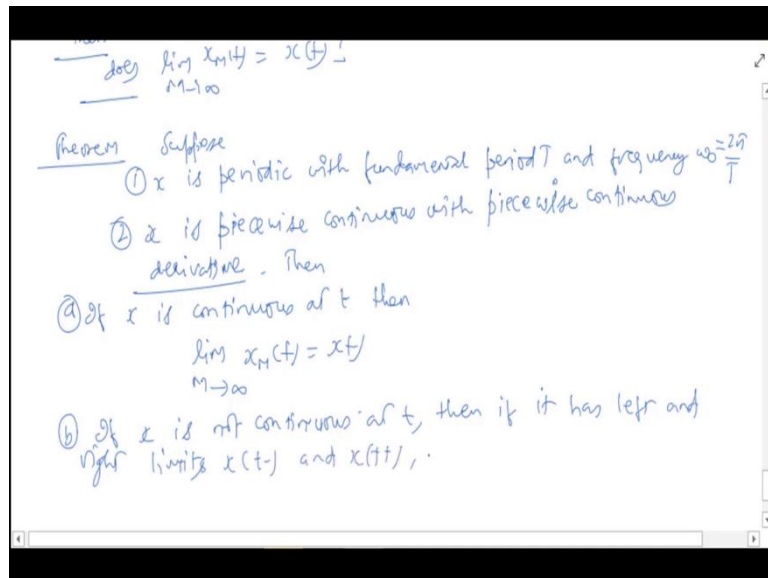 does lim x_M(t) = x(t)?
M→∞
Theorem Suppose
① x is periodic with fundamental period T and frequency ω₀ = 2π/T
② x is piecewise continuous with piecewise continuous
derivative. Then
ⓐ If x is continuous at t then
lim x_M(t) = x(t)
M→∞
ⓑ If x is not continuous at t, then if it has left and
right limits x(t-) and x(t+),